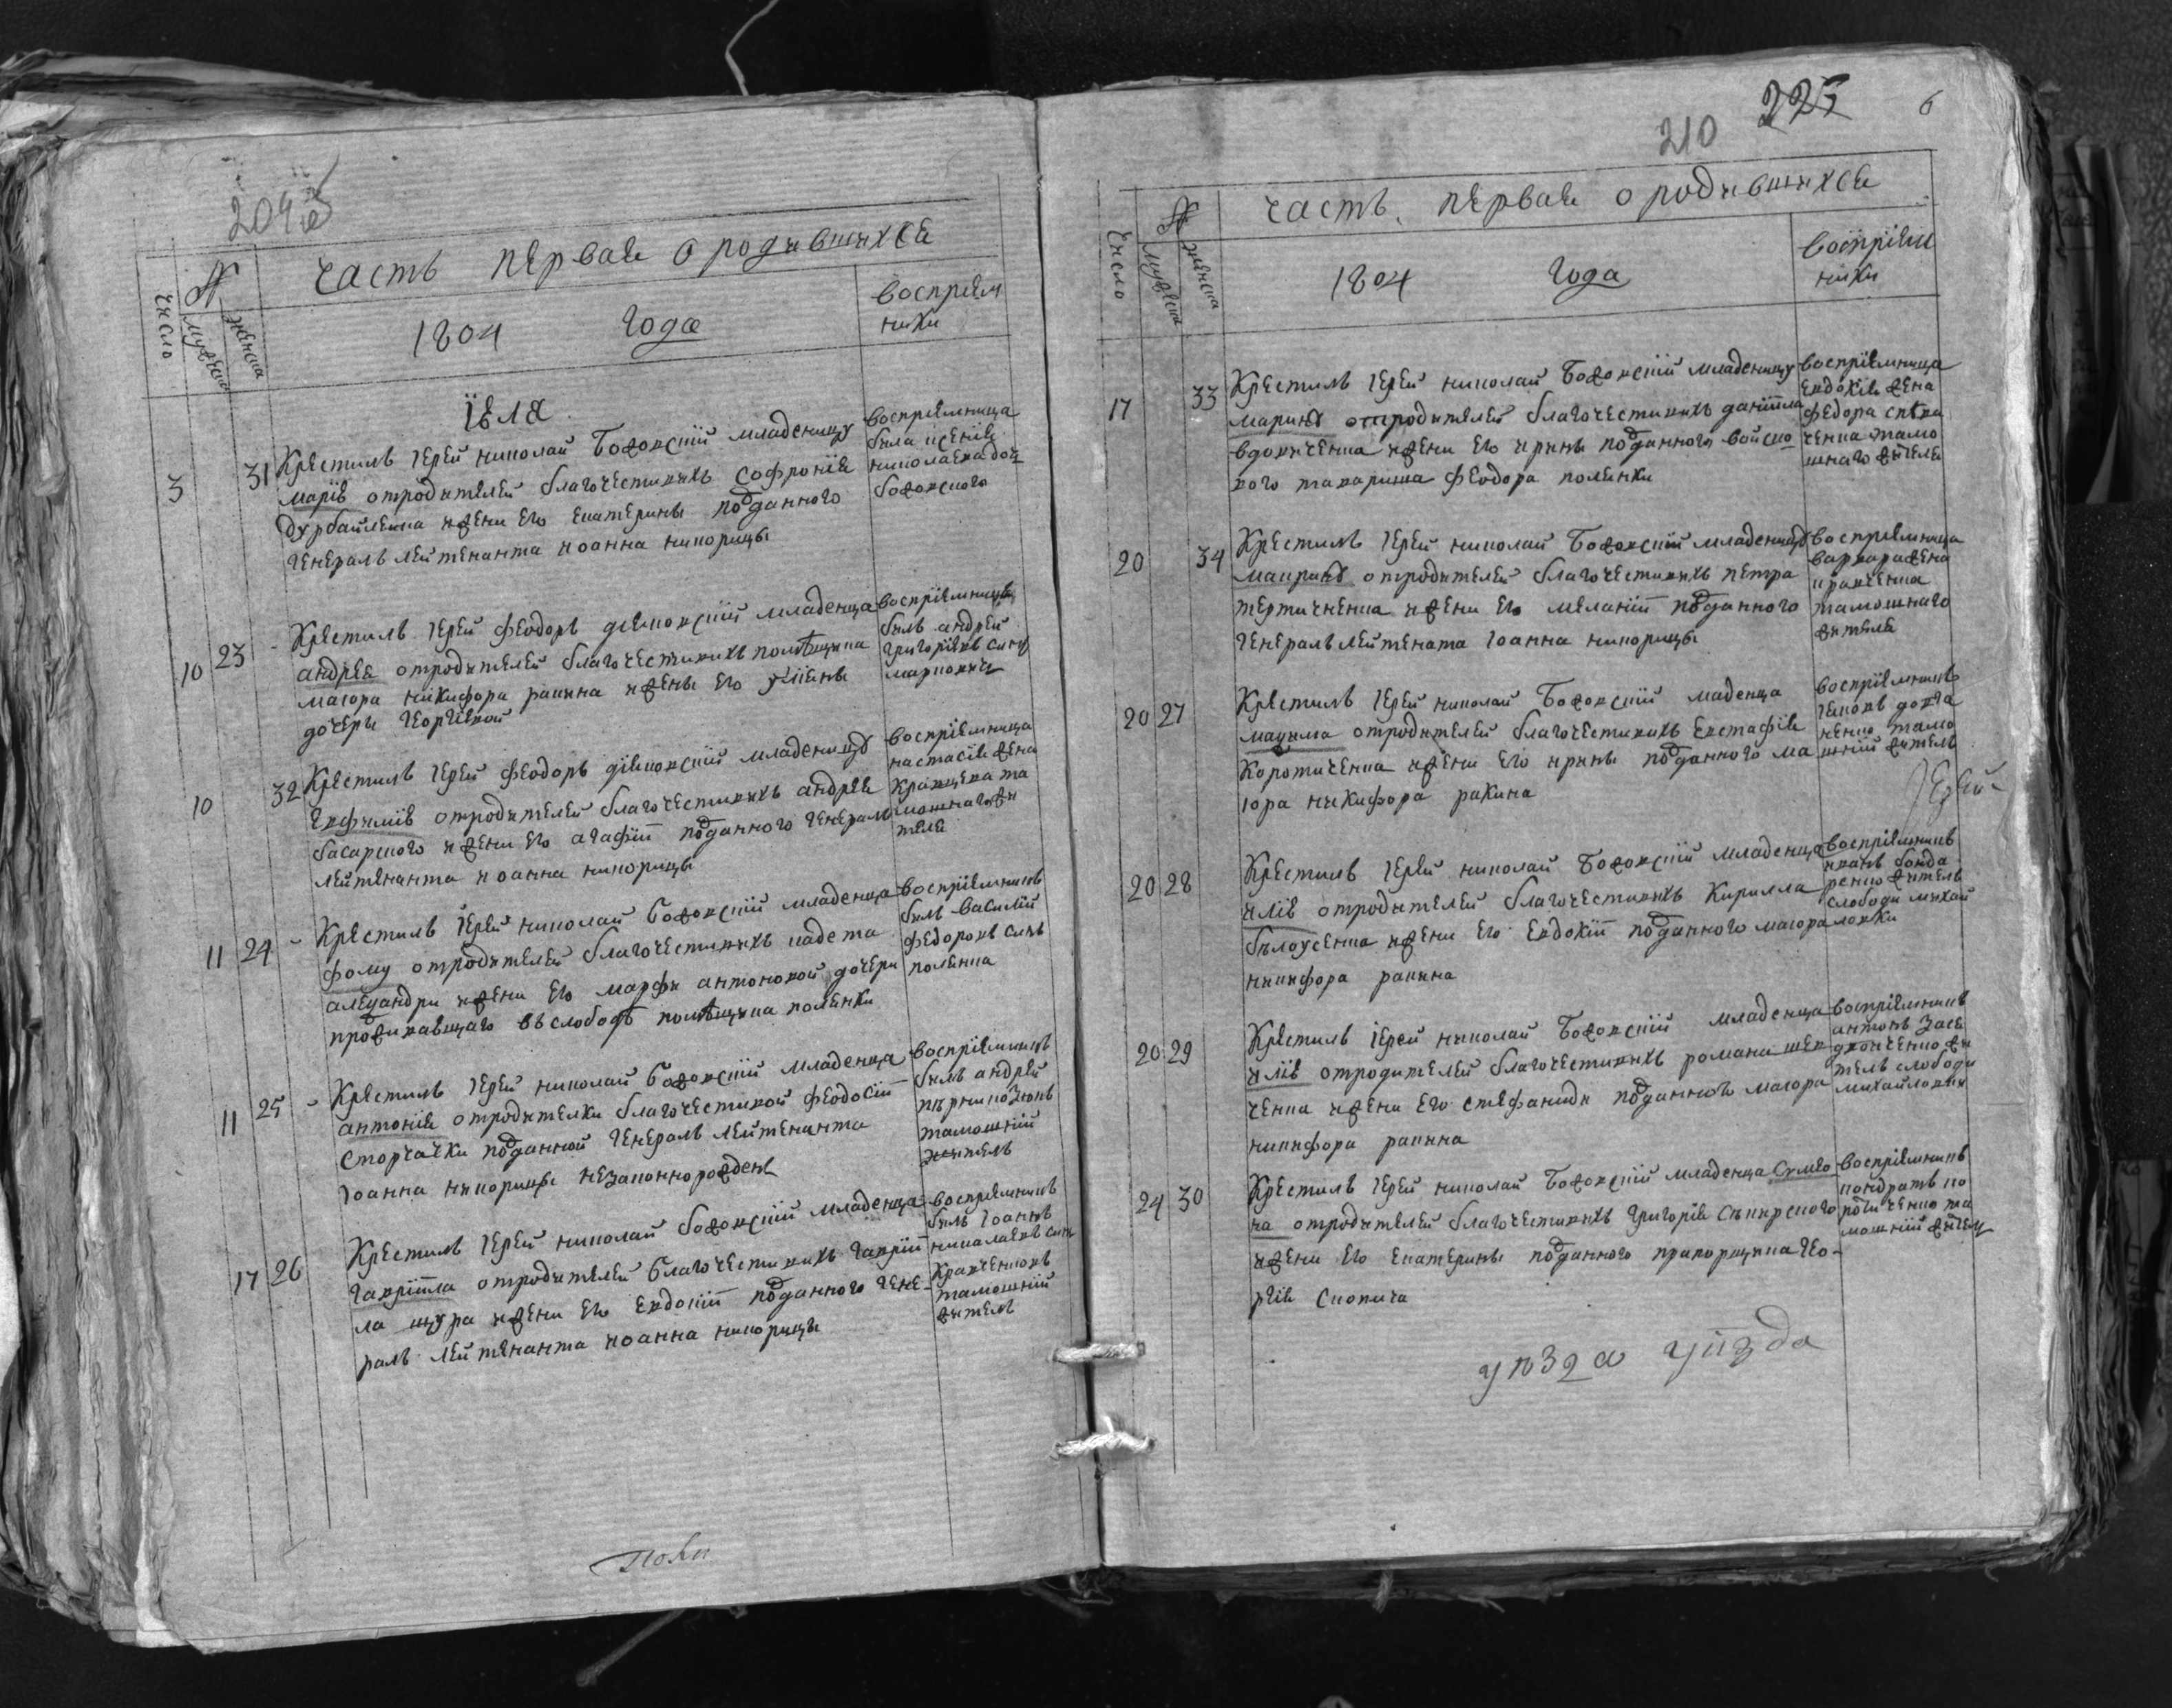 209
часть первая о родившихся
число
№
мужеска
женска
1804 года
восприем
ники
Іюля
3 31 Крестилъ Іерей николай Божокскій младеницу
марію отродителей благочестивихъ софронія
дурбайленка ижени его екатерины подданного
генералъ лейтенанта иоанна никорицы
восприемница
била ксенія
николаева доч
божокского
10 23 - Крестилъ Іерей феодоръ діяковскій младенца
андрея отродителей благочестивихъ помѣщика
маіора никифора ракина ижены его
дочеры георгіевой
восприемникъ
билъ андрей
григоріевъ синъ
маркович
10 32 Крестилъ Іерей феодоръ діяковскій младеницу
евфимію отродителей благочестивихъ андрея
басарского ижени его агафіи подданного генералъ
лейтенанта иоанна никорицы
восприемница
настасія жена
кравцева та
мошнаго жи
теля
11 24 - Крестилъ Іерей николай Божокскій младенца
фому отродителей благочестивихъ кадета
алеѯандри ижени его марфи антоновой дочери
проживавщаго въ слободѣ помѣщика поленки
восприемникъ
билъ василій
федоровъ синъ
поленка
11 25 - Крестилъ Іерей николай Божокскій младенца
антонія отродителки благочестивой феодосіи
сторчачки подданной генералъ лейтенанта
Іоанна никорицы незаконнорожденъ
восприемникъ
билъ андрей
тамошній
житель
17 26 Крестилъ Іерей николай Божокскій младенца
гавріила отродителей благочестивихъ гавріи
ла щура ижени его евдокіи подданного гене-
ралъ лейтенанта иоанна никорицы
восприемникъ
билъ Іоаннъ
николаевъ синъ
кравченковъ
тамошній
житель
210 225 6
часть первая о родившихся
число
№
мужеска
женска
1804 года
воспріем
ники
17 33 Крестилъ Іерей николай Божокскій младеницу
марину отродителей благочестивихъ даніила
вдовиченка ижени его ирины подданного войско
вого товариша феодора поленки
воспріемница
евдокія жена
федора спѣва
ченка тамо
шнаго жителя
20 34 Крестилъ Іерей николай Божокскій младеницу
маврину отродителей благочестивихъ петра
тертичненка ижени его меланіи подданного
генералъ лейтената Іоанна никорицы
воспріемница
варвара жена
кравченка
тамошнаго
жителя
20 27 Крестилъ Іерей николай Божокскій маденца
маѯима отродителей благочестивихъ евстафія
коротиченка ижени его ирины подданного ма
іора никифора ракина
воспріемникъ
ненко тамо
шній житель
Іерей
20 28 Крестилъ Іерей николай Божокскій младенца
илію отродителей благочестивихъ кирилла
бѣлоусенка ижени его евдокіи подданного маіора
никифора ракина
воспріемникъ
иванъ бонда
ренко житель
слободи михай
ловки
20 29 Крестилъ Іерей николай Божокскій младенца
илію отродителей благочестивихъ романа шев
ченка ижени его стефаниди подданного маіора
никифора ракина
воспріемникъ
антонъ засе
дконченко жи
тель слободи
михайловки
24 30 Крестилъ Іерей николай Божокскій младенца Сумео
на отродителей благочестивихъ григорія снѣкрского
ижени его екатерины подданного прапорщика гео-
ргія скопича
воспріемникъ
кондратъ ко
ротиченко та
мошній житель
уѣзда